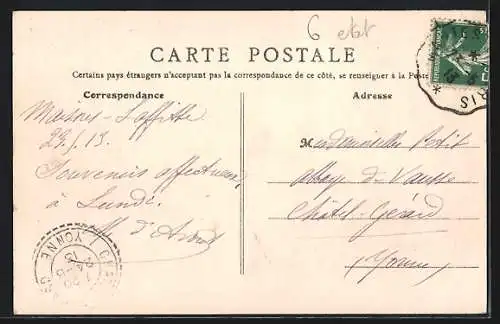 6 etat
CARTE POSTALE
Certains pays étrangers n'acceptant pas la correspondance de ce côté, se renseigner à la Poste
Correspondance
Adresse
Maisons-Laffitte
29.5.13.
Souvenirs affectueux
à Lundi.
M. d'
Mademoiselle Petit
abbaye de Vausse
Châtel-Gérard
(Yonne)
YONNE
RIS